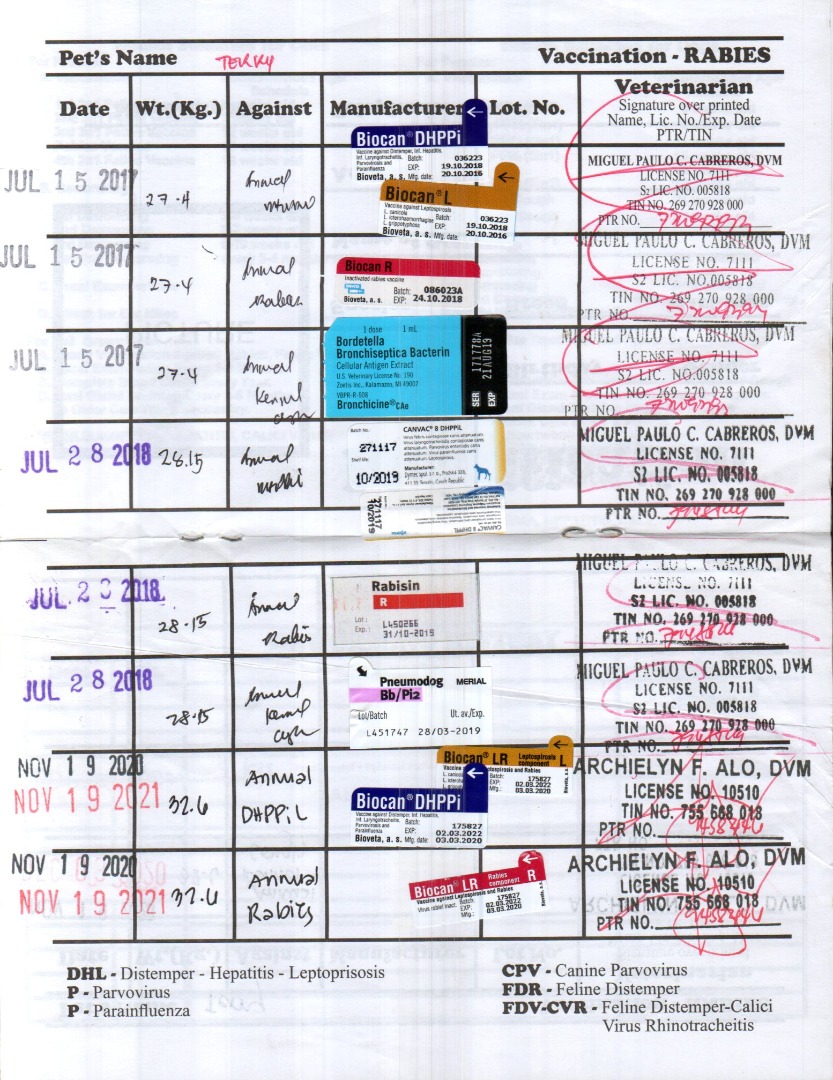 Pet's Name TERRY Vaccination - RABIES
Date Wt.(Kg.) Against Manufacturer Lot. No. Veterinarian
Signature over printed
Name, Lic. No./Exp. Date
PTR/TIN
JUL 15 2017
27.4
Annual
Biocan® DHPPi
Vaccine against Distemper, Inf. Hepatitis,
Inf. Laryngotracheitis,
Parvovirosis and
Parainfluenza
Batch: 036223
EXP: 19.10.2018
Bioveta, a. s. Mfg. date: 20.10.2016
Biocan® L
Vaccine against Leptospirosis
L. canicola
L. icterohaemorrhagiae
L. grippotyphosa
Batch: 036223
EXP: 19.10.2018
Bioveta, a. s. Mfg. date: 20.10.2016
MIGUEL PAULO C. CABREROS, DVM
LICENSE NO. 7111
S2 LIC. NO. 005818
TIN NO. 269 270 928 000
PTR NO.
JUL 15 2017
27.4
Annual
Rabies
Biocan R
Inactivated rabies vaccine
Batch: 086023A
Bioveta, a. s. EXP: 24.10.2018
MIGUEL PAULO C. CABREROS, DVM
LICENSE NO. 7111
S2 LIC. NO.005818
TIN NO. 269 270 928 000
PTR NO.
JUL 15 2017
27.4
Annual
Kennel
cough
1 dose 1 mL
Bordetella
Bronchiseptica Bacterin
Cellular Antigen Extract
U.S. Veterinary License No. 190
Zoetis Inc., Kalamazoo, MI 49007
VBPR-R-508
Bronchicine® CAe
SER 171778A
EXP 21AUG19
MIGUEL PAULO C. CABREROS, DVM
LICENSE NO. 7111
S2 LIC. NO.005818
TIN NO. 269 270 928 000
PTR NO.
JUL 28 2018
28.15
Annual
Batch No.
271117
Shelf life:
10/2019
CANVAC® 8 DHPPiL
Manufacturer:
MIGUEL PAULO C. CABREROS, DVM
LICENSE NO. 7111
S2 LIC. NO. 005818
TIN NO. 269 270 928 000
PTR NO.
271117
10/2019
CANVAC® 8 DHPPiL
JUL 28 2018
28.15
Annual
Rabies
Rabisin
R
Lot: L450266
Exp.: 31/10-2019
MIGUEL PAULO C. CABREROS, DVM
LICENSE NO. 7111
S2 LIC. NO. 005818
TIN NO. 269 270 928 000
PTR NO.
JUL 28 2018
28.15
Annual
Kennel
cough
Pneumodog MERIAL
Bb/Pi2
Lot/Batch Ut. av./Exp.
L451747 28/03-2019
MIGUEL PAULO C. CABREROS, DVM
LICENSE NO. 7111
S2 LIC. NO. 005818
TIN NO. 269 270 928 000
PTR NO.
NOV 19 2020
NOV 19 2021
32.6
Annual
DHPPiL
Biocan® LR Leptospirosis component L
175827
EXP: 02.03.2022
Mfg.: 03.03.2020
Biocan® DHPPi
Vaccine against Distemper, Inf. Hepatitis,
Inf. Laryngotracheitis,
Parvovirosis and
Parainfluenza
Batch: 175827
EXP: 02.03.2022
Bioveta, a. s. Mfg. date: 03.03.2020
ARCHIELYN F. ALO, DVM
LICENSE NO. 10510
TIN NO. 755 668 018
PTR NO.
NOV 19 2020
NOV 19 2021
32.6
Annual
Rabies
Biocan® LR Rabies component R
Vaccine against Leptospirosis and Rabies
Virus rabiei inact.
Batch: 175827
EXP: 02.03.2022
Mfg.: 03.03.2020
Bioveta, a.s.
ARCHIELYN F. ALO, DVM
LICENSE NO. 10510
TIN NO. 755 668 018
PTR NO.
DHL - Distemper - Hepatitis - Leptoprisosis
P - Parvovirus
P - Parainfluenza
CPV - Canine Parvovirus
FDR - Feline Distemper
FDV-CVR - Feline Distemper-Calici
Virus Rhinotracheitis